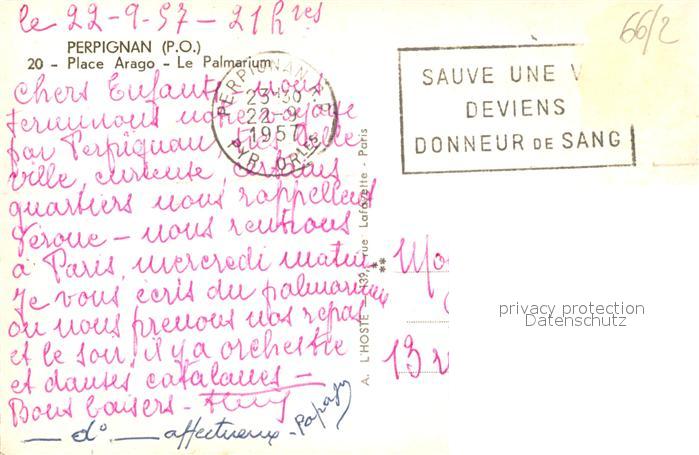 le 22-9-57 - 21hres
PERPIGNAN (P.O.)
20 - Place Arago - Le Palmarium
Chers Enfants, nous
terminons notre voyage
par Perpignan, très belle
ville, curieuse, certains
quartiers nous rappellent
Vérone - nous rentrons
à Paris, mercredi matin
Je vous écris du palmarium
où nous prenons nos repas
et le soir, il y a orchestre
et danses catalanes -
Bons baisers -
- do - affectueux - Papa
PERPIGNAN R.P.
23H30
22-9
1957
PYR. ORles
SAUVE UNE V
DEVIENS
DONNEUR DE SANG
66/2
A. L'HOSTE - 139, rue Lafayette - Paris
13 r
privacy protection
Datenschutz